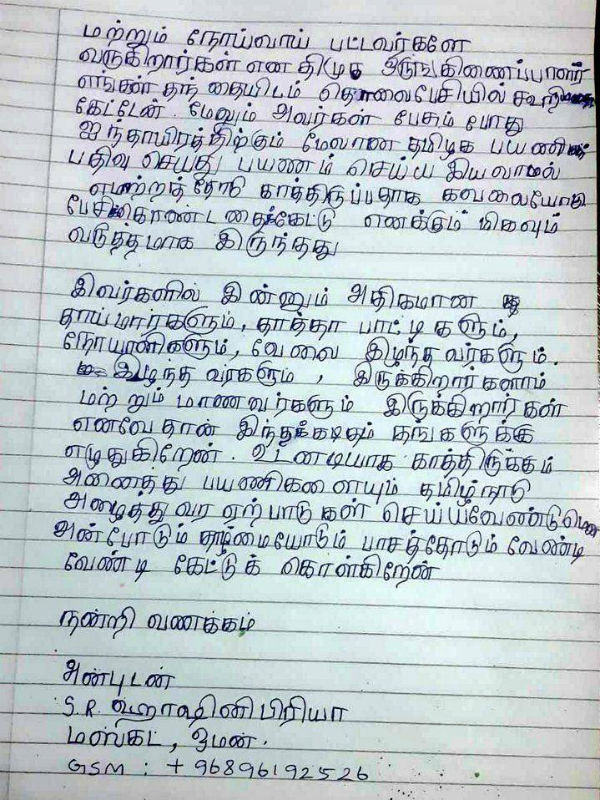 மற்றும் நோய்வாய் பட்டவர்களே
வருகிறார்கள் என திமுக அருங்கிணைப்பாளர்
எங்கள் தந்தையிடம் தொலைபேசியில் கூறி
கேட்டேன். மேலும் அவர்கள் பேசும் போது
ஐந்தாயிரத்திற்கும் மேலான தமிழக பயணி
பதிவு செய்து பயணம் செய்ய இயலாமல்
ஏமாற்றத்தோடு காத்திருப்பதாக கவலையோடு
பேசிகொண்டதைகேட்டு எனக்கும் மிகவும்
வருத்தமாக இருந்தது
இவர்களில் இன்னும் அதிகமான
தாய்மார்களும், தாத்தா பாட்டிகளும்,
நோயாளிகளும், வேலை இழந்தவர்களும்.
இழந்தவர்களும், இருக்கிறார்களாம்
மற்றும் மாணவர்களும் இருக்கிறார்கள்
எனவேதான் இந்தக்கடிதம் தங்களுக்கு
எழுதுகிறேன். உடனடியாக காத்திருக்கும்
அனைத்து பயணிகளையும் தமிழ்நாடு
அழைத்து வர ஏற்பாடுகள் செய்ய்வேண்டுமென
அன்போடும் தாழ்மையோடும் பாசத்தோடும் வேண்டி
வேண்டி கேட்டுக் கொள்கிறேன்
நன்றி வணக்கம்
அன்புடன்
S.R. ஹாஷினிபிரியா
மஸ்கட், ஓமன்.
GSM : +96896192526